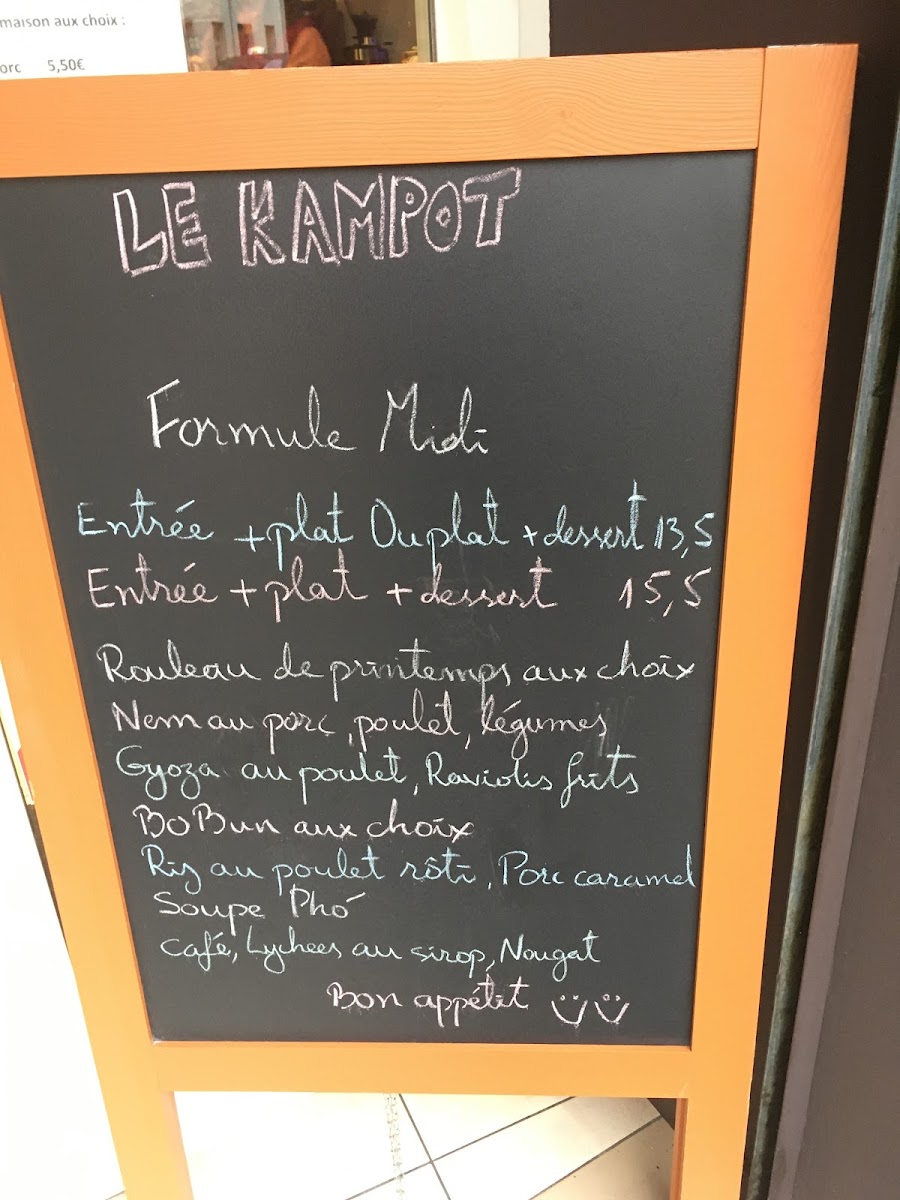 maison aux choix :
orc 5,50€
LE KAMPOT
Formule Midi
Entrée + plat Ou plat + dessert 13,5
Entrée + plat + dessert 15,5
Rouleau de printemps aux choix
Nem au porc, poulet, légumes
Gyoza au poulet, Raviolis frits
BoBun aux choix
Riz au poulet rôti, Porc caramel
Soupe Phó
café, Lychees au sirop, Nougat
Bon appétit